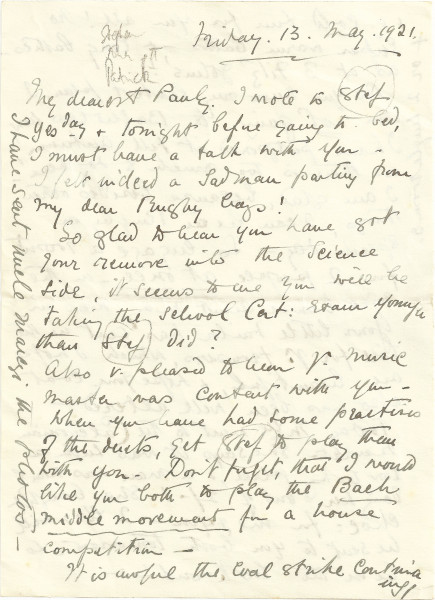 Friday. 13. May. 1921.
Patrick
My dearest Pauly. I wrote to Stef
yesday & tonight before going to bed,
I must have a talk with you –
I felt indeed a Sad man parting from
my dear Rugby boys!
So glad to hear you have got
your remove into the Science
side, it seems to me you will be
taking the School Cert: Exam younger
than Stef did?
Also v. pleased to hear yr. Music
master was content with you –
When you have had some practises
of the duets, get Stef to play them
with you – Don't forget, that I would
like you both to play the Bach
middle movement for a house
competition –
It is awful the Coal Strike continu
ing!
I have sent Uncle the photos –